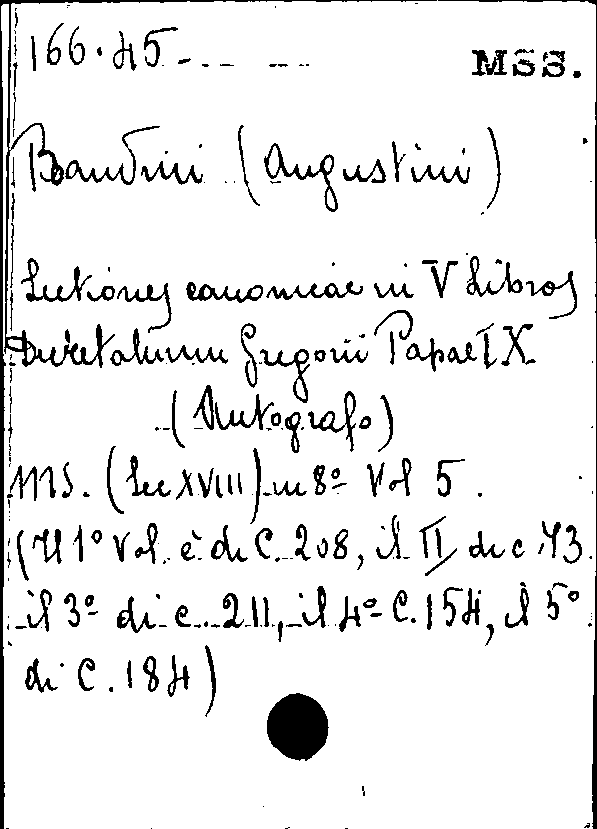 166.45 - MSS.
Bandini (Augustini)
Lectiones canonicae in V Libros
Decretalium Gregorii Papae IX
(Autografo)
MS. (Sec XVIII) in 8º Vol 5.
(Il 1º Vol. è di C. 208, il II di c. 43
il 3º di c. 211, il 4º C. 154, il 5º
di C. 184)